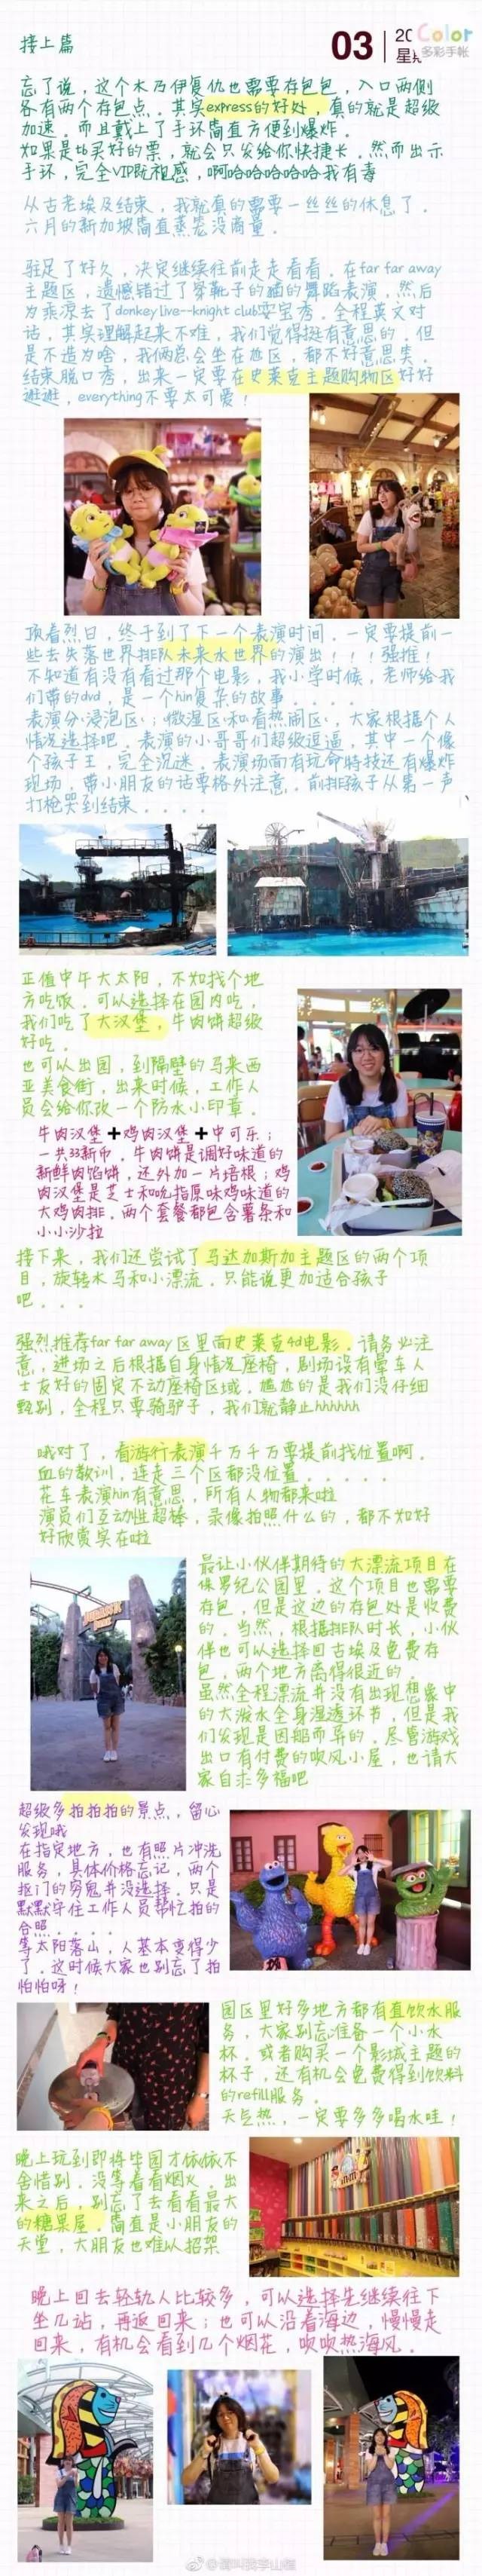 接上篇
03
20
星期
Color
多彩手帐
忘了说，这个木乃伊复仇也需要存包包，入口两侧
各有两个存包点。其实express的好处，真的就是超级
加速。而且戴上了手环简直方便到爆炸。
如果是tb买好的票，就会只发给你快捷卡。然而出示
手环，完全VIP既视感，啊哈哈哈哈哈我有毒
从古老埃及结束，我就真的需要一丝丝的休息了。
六月的新加坡简直蒸笼没商量。
驻足了好久，决定继续往前走走看看。在far far away
主题区，遗憾错过了穿靴子的猫的舞蹈表演，然后
为乘凉去了donkey live--knight club耍宝秀。全程英文对
话，其实理解起来不难，我们觉得挺有意思的。但
是不造为啥，我俩总会坐在尬区，都不好意思笑。
结束脱口秀，出来一定要在史莱克主题购物区好好
逛逛，everything不要太可爱！
顶着烈日，终于到了下一个表演时间。一定要提前一
些去失落世界排队未来水世界的演出！！！强推！
不知道有没有看过那个电影，我小学时候，老师给我
们带的dvd，是一个hin复杂的故事....
表演分‘浸泡区’；‘微湿区’和‘看热闹区’，大家根据个人
情况选择吧。表演的小哥哥们超级逗逼，其中一个像
个孩子王，完全沉迷。表演场面有玩命特技还有爆炸
现场，带小朋友的话要格外注意。前排孩子从第一声
打枪哭到结束....
正值中午大太阳，不如找个地
方吃饭。可以选择在园内吃，
我们吃了大汉堡，牛肉饼超级
好吃。
也可以出园，到隔壁的马来西
亚美食街，出来时候，工作人
员会给你改一个防水小印章。
牛肉汉堡➕鸡肉汉堡➕中可乐；
一共33新币。牛肉饼是调好味道的
新鲜肉馅饼，还外加一片培根；鸡
肉汉堡是芝士和吮指原味鸡味道的
大鸡肉排。两个套餐都包含薯条和
小小沙拉
接下来，我们还尝试了马达加斯加主题区的两个项
目，旋转木马和小漂流。只能说更加适合孩子
吧...
强烈推荐far far away区里面史莱克4d电影。请务必注
意，进场之后根据自身情况座椅，剧场设有晕车人
士友好的固定不动座椅区域。尴尬的是我们没仔细
甄别，全程只要骑驴子，我们就静止hhhhhh
哦对了，看游行表演千万千万要提前找位置啊。
血的教训，连走三个区都没位置.....
花车表演hin有意思，所有人物都来啦
演员们互动性超棒，录像拍照什么的，都不如好
好欣赏实在啦
最让小伙伴期待的大漂流项目在
侏罗纪公园里。这个项目也需要
存包，但是这边的存包处是收费
的。当然，根据排队时长，小伙
伴也可以选择回古埃及免费存
包，两个地方离得很近的。
虽然全程漂流并没有出现想象中
的大泼水全身湿透环节，但是我
们发现是因船而异的。尽管游戏
出口有付费的吹风小屋，也请大
家自求多福吧
超级多拍拍拍的景点，留心
发现哦
在指定地方，也有照片冲洗
服务，具体价格忘记，两个
抠门的穷鬼并没选择。只是
默默守住工作人员帮忙拍的
合照....
等太阳落山，人基本变得少
了。这时候大家也别忘了拍
怕怕呀！
园区里好多地方都有直饮水服
务，大家别忘准备一个小水
杯。或者购买一个影城主题的
杯子，还有机会免费得到饮料
的refill服务。
天气热，一定要多多喝水哇！
晚上玩到即将毕园才依依不
舍惜别。没等着看烟火。出
来之后，别忘了去看看最大
的糖果屋。简直是小朋友的
天堂，大朋友也难以招架
晚上回去轻轨人比较多，可以选择先继续往下
坐几站，再返回来；也可以沿着海边，慢慢走
回来，有机会看到几个烟花，吹吹热海风。